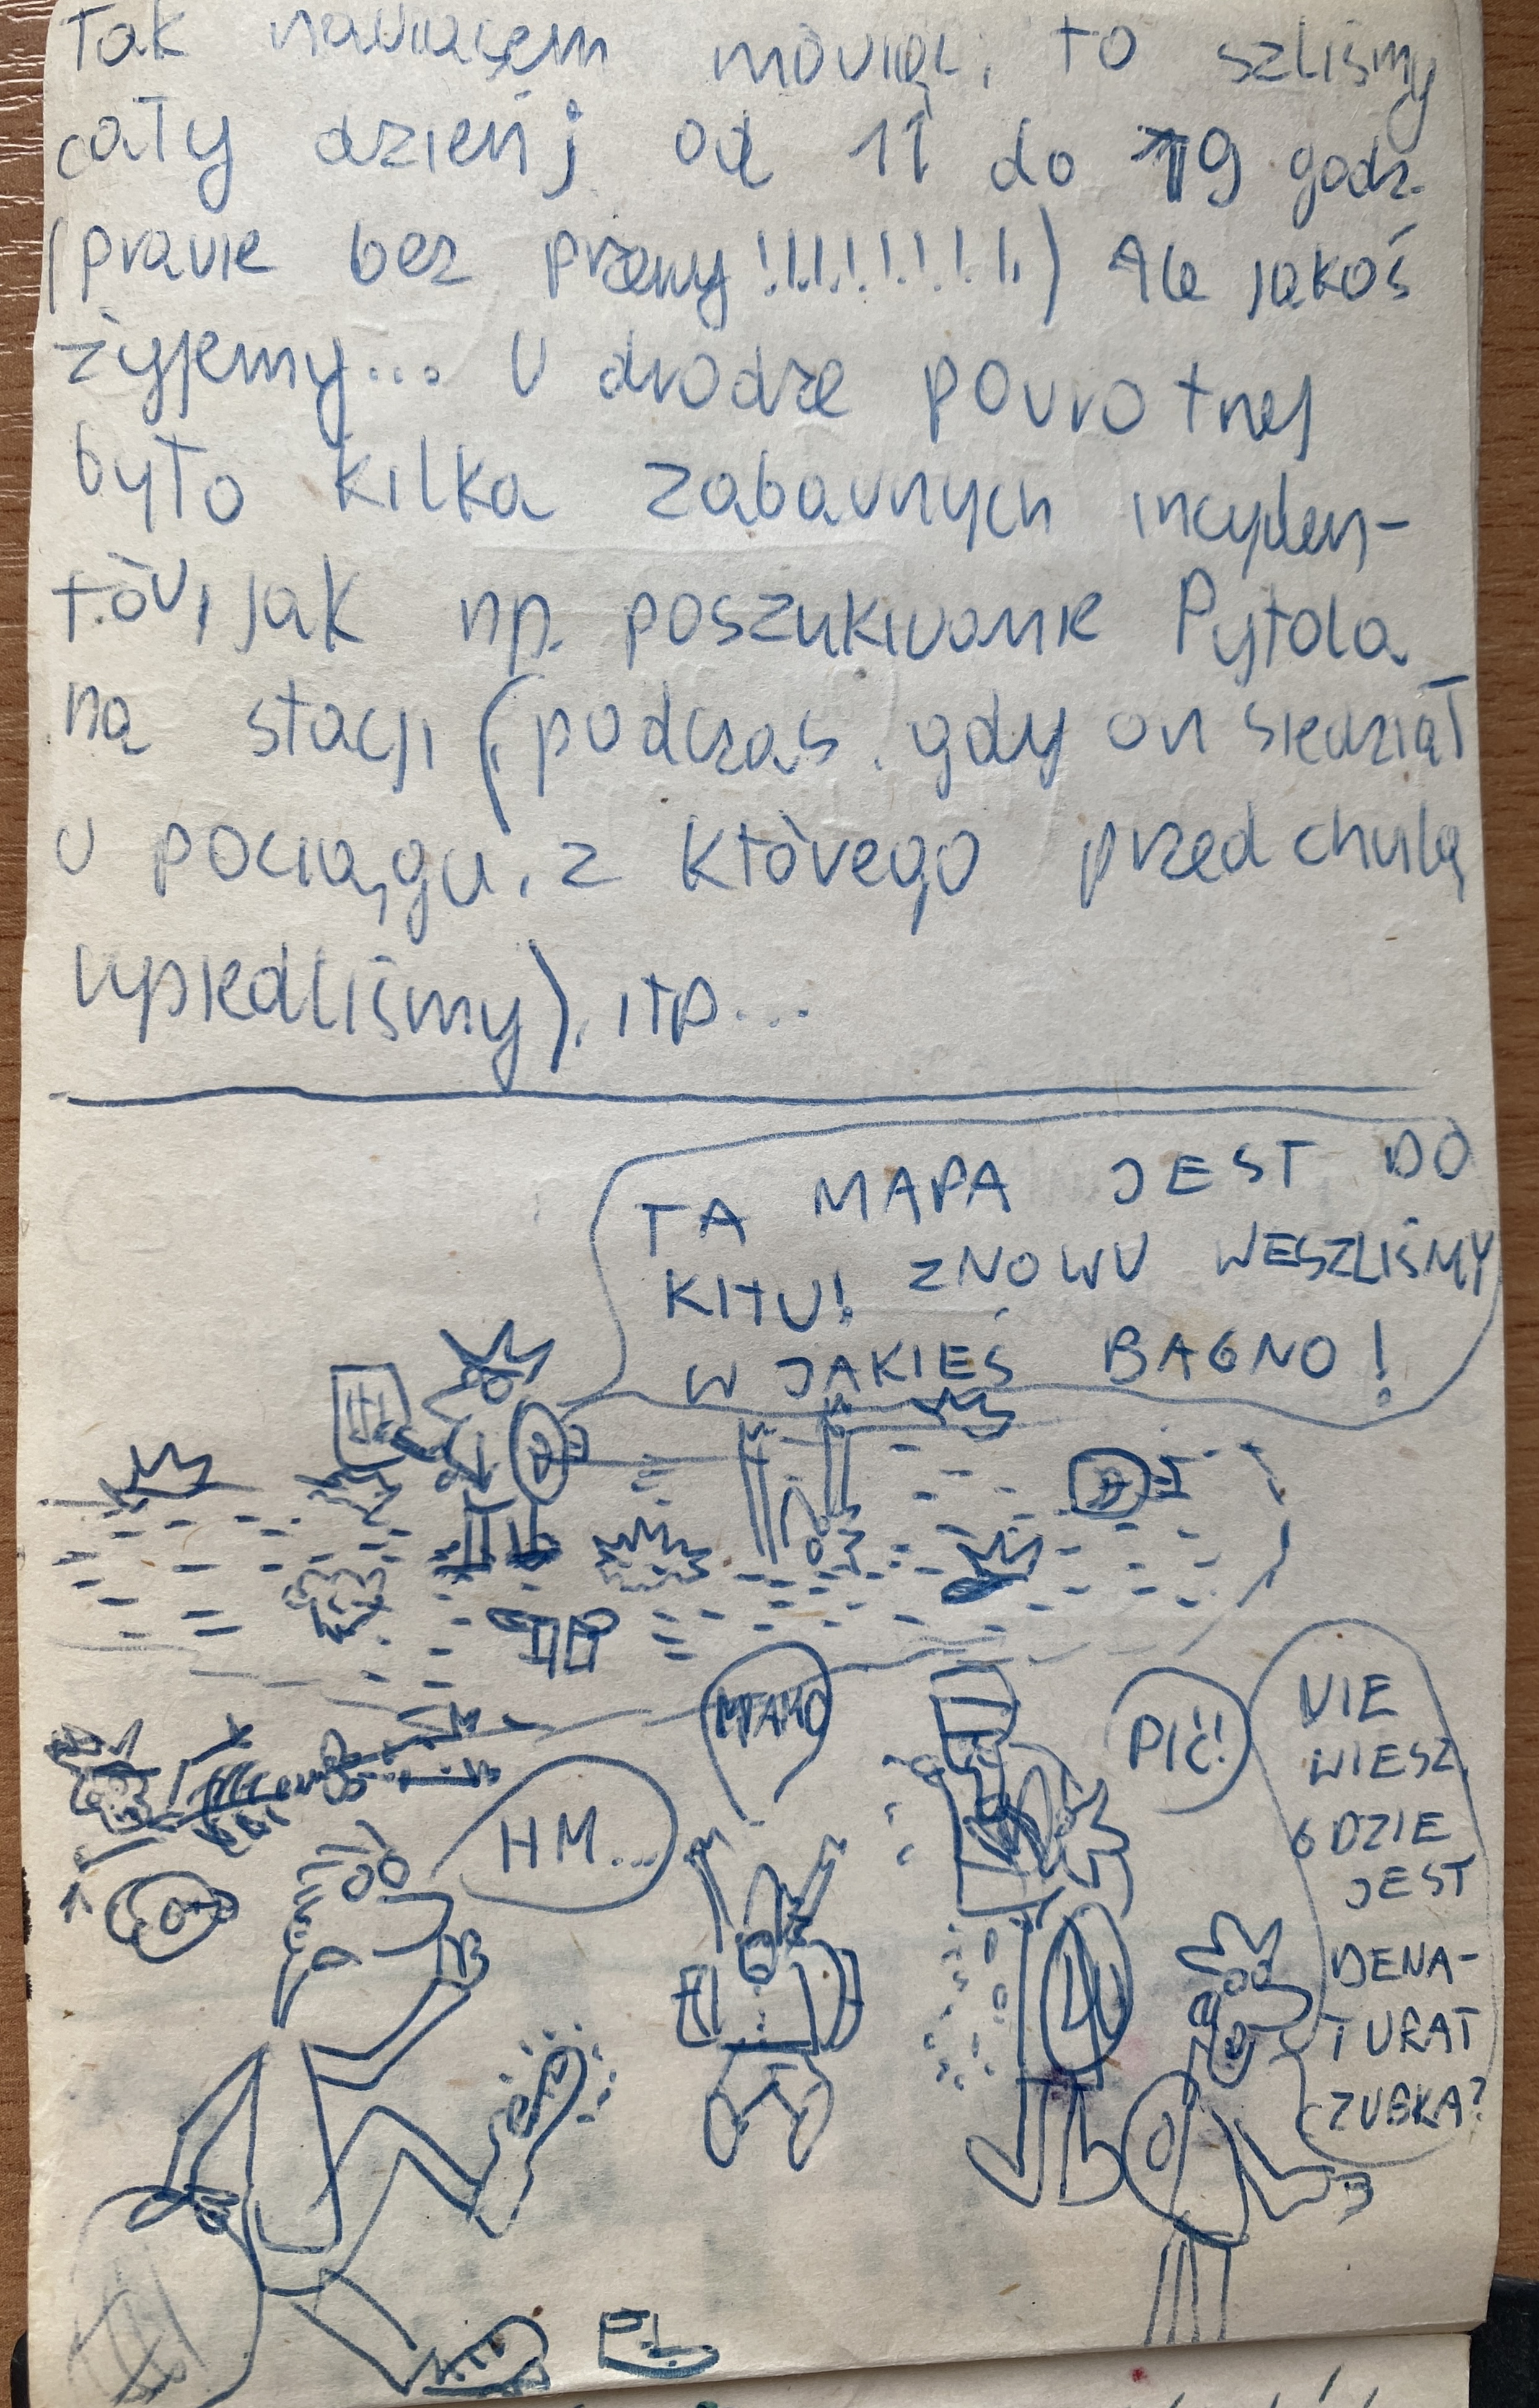 Tak nawiasem mówiąc, to szliśmy
cały dzień, od 11 do 19 godz.
(prawie bez przerwy!!!!!!!!!) Ale jakoś
żyjemy... W drodze powrotnej
było kilka zabawnych incyden-
tów, jak np. poszukiwanie Pytola
na stacji (podczas gdy on siedział
w pociągu, z którego przed chwilą
wysiedliśmy), itp...
TA MAPA JEST DO
KITU! ZNOWU WESZLIŚMY
W JAKIEŚ BAGNO!
HM...
PIĆ!
NIE
WIESZ
GDZIE
JEST
DENA-
TURAT
ZUBKA?